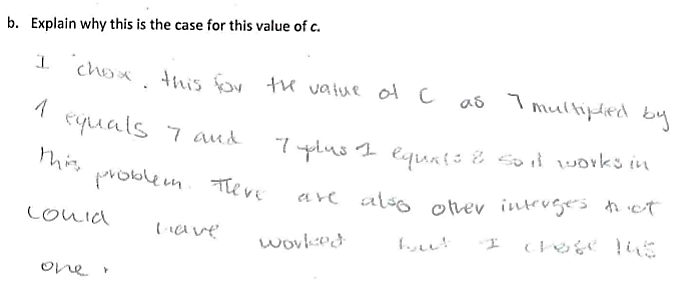 b. Explain why this is the case for this value of c.
I chose. this for the value of C as 7 multiplied by
1 equals 7 and 7 plus 1 equals 8 so it works in
this problem. There are also other interges that
could have worked but I chose this
one.